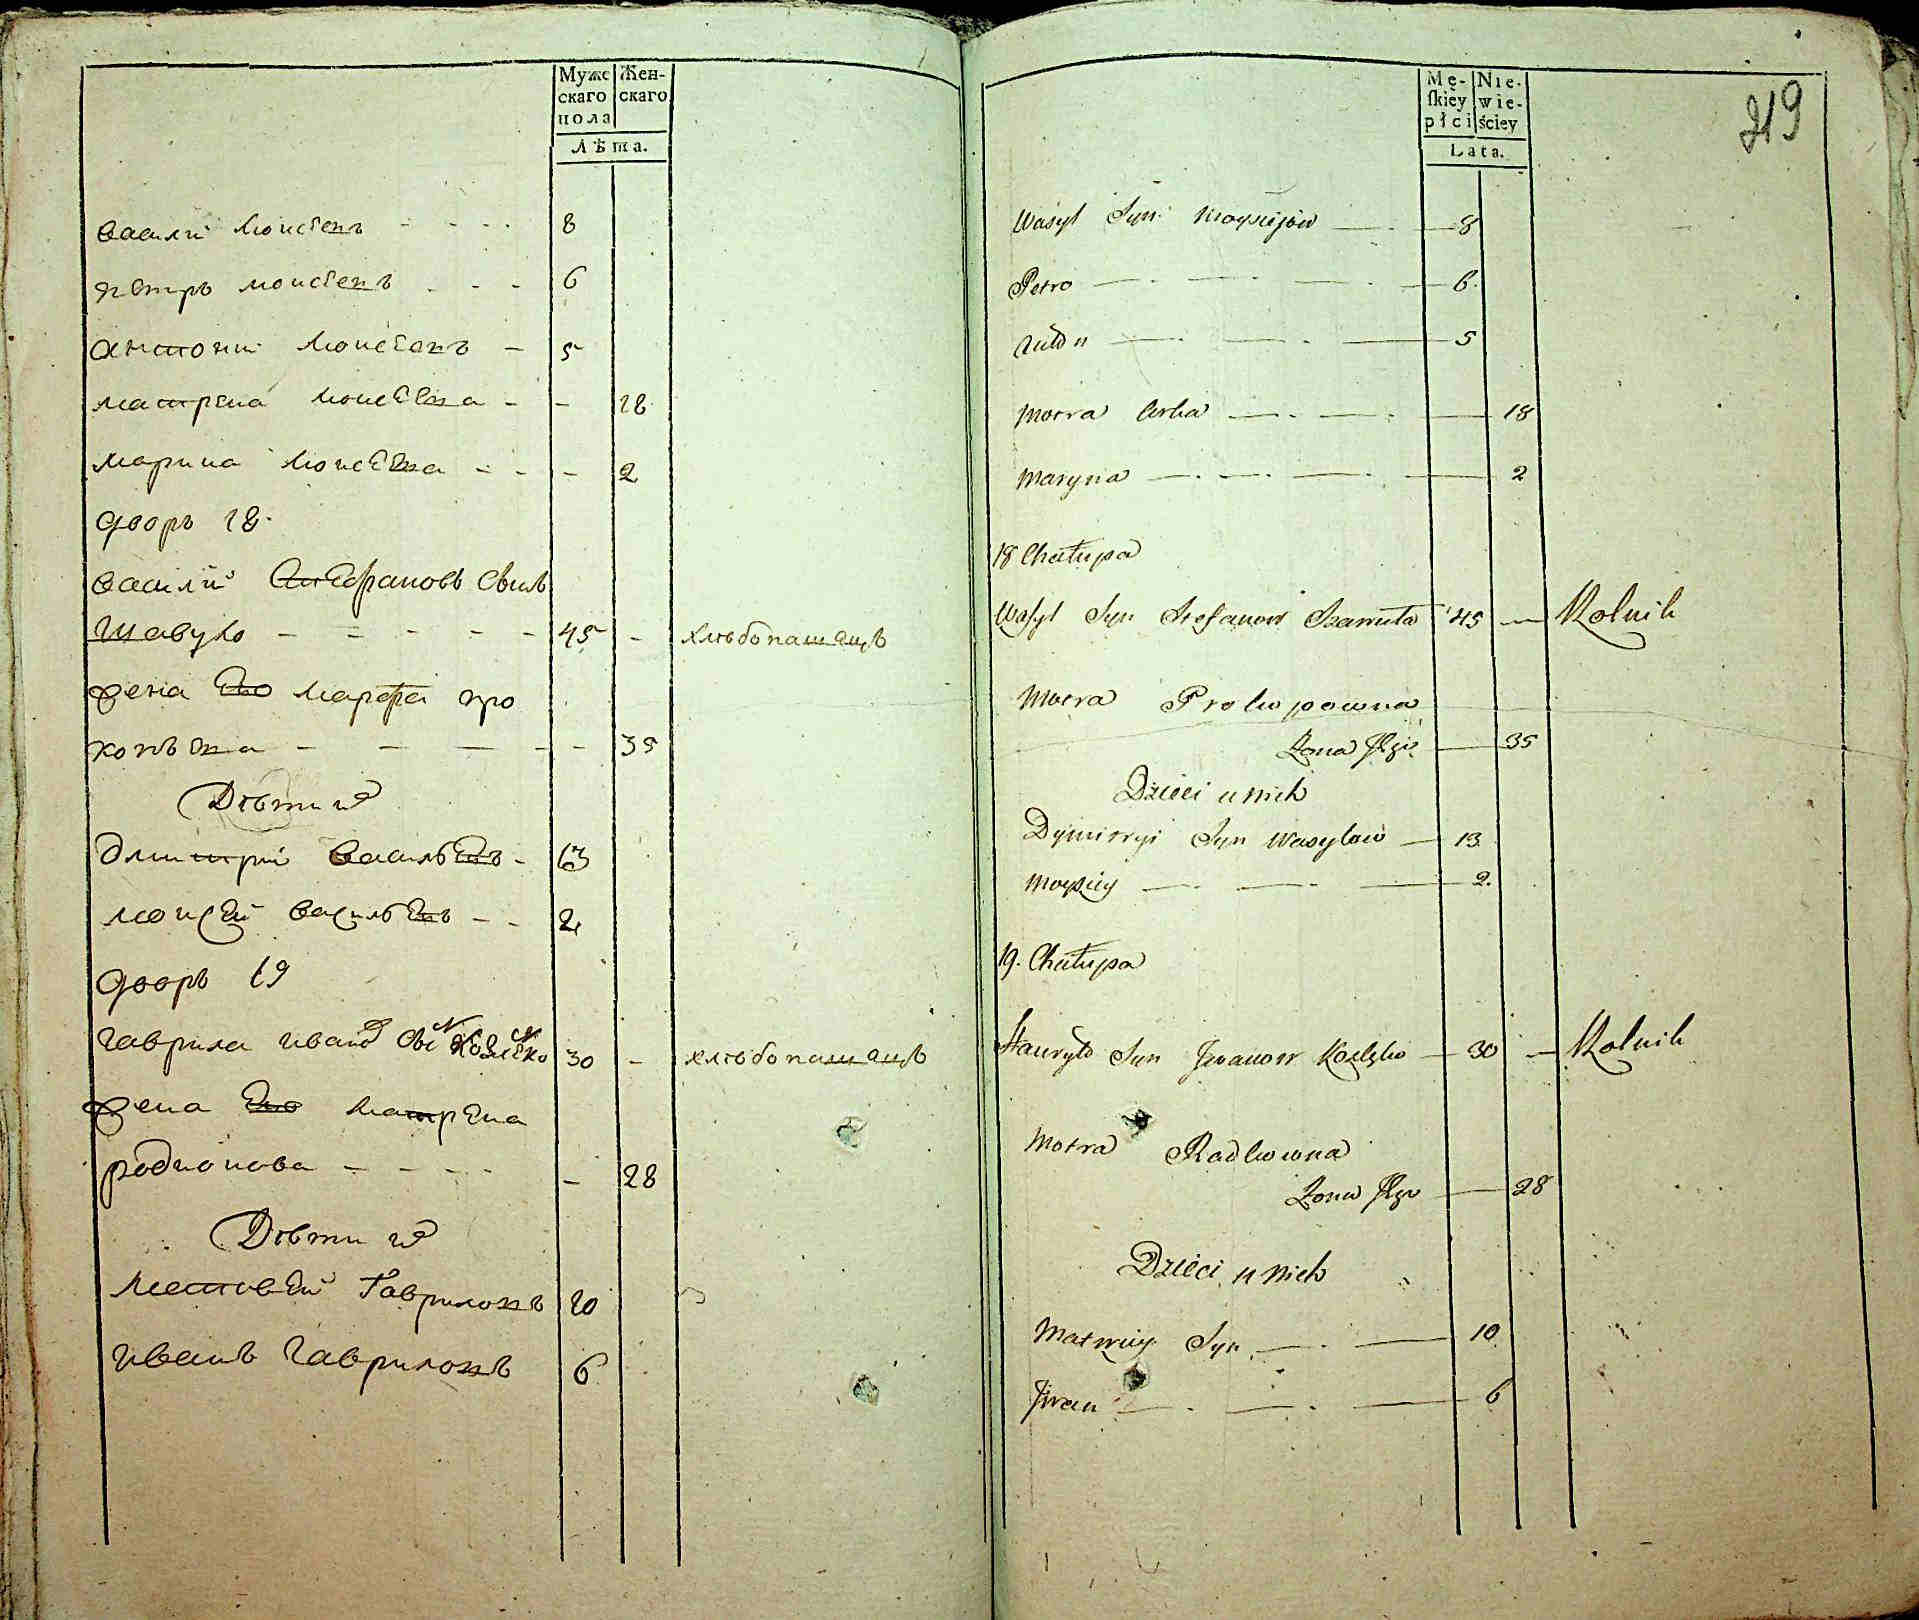 Муже
скаго
пола
Жен-
скаго
Лѣта.
василій моисеевъ - - - - 8
петръ моисеевъ - - - 6
антоній моисеевъ - 5
матрена моисеева - - 18
марина моисеева - - - 2
дворъ 18.
василій Стефановъ сынъ
шавуло - - - - - 45 - хлѣбопашецъ
жена Его марфа про
копьева - - - - - 35
Дѣти ихъ
дмитрий васильевъ - 13
моисей васильевъ - - 2
дворъ 19
гаврила иванов сынъ козлѣко 30 - хлѣбопашецъ
жена Его матрена
родионова - - - - - 28
Дѣти ихъ
матвѣй Гавриловъ 10
иванъ гавриловъ 6
Mę-
ſkiey
płci
Nie-
wie-
ściey
Lata.
219
Wasyl Syn Moysiejów — 8
Petro — · — · — 6.
Anton — · — · — 5
Motra Corka — · — · — 18
Maryna — · — · — 2
18 Chałupa
Wasyl Syn Stefanow Szawuła 45 — Rolnik
Motra Prokopowna
Zona Jego — 35
Dzieci u nich
Dymitryi Syn Wasylow — 13
Moysiey — · — · — 2.
19. Chałupa
Hawryło Syn Jwanow Kozlęko — 30 — Rolnik
Motra Radkowna
Zona Jego — 28
Dzieci u nich
Matwiey Syn — · — 10
Jwan — · — · — 6